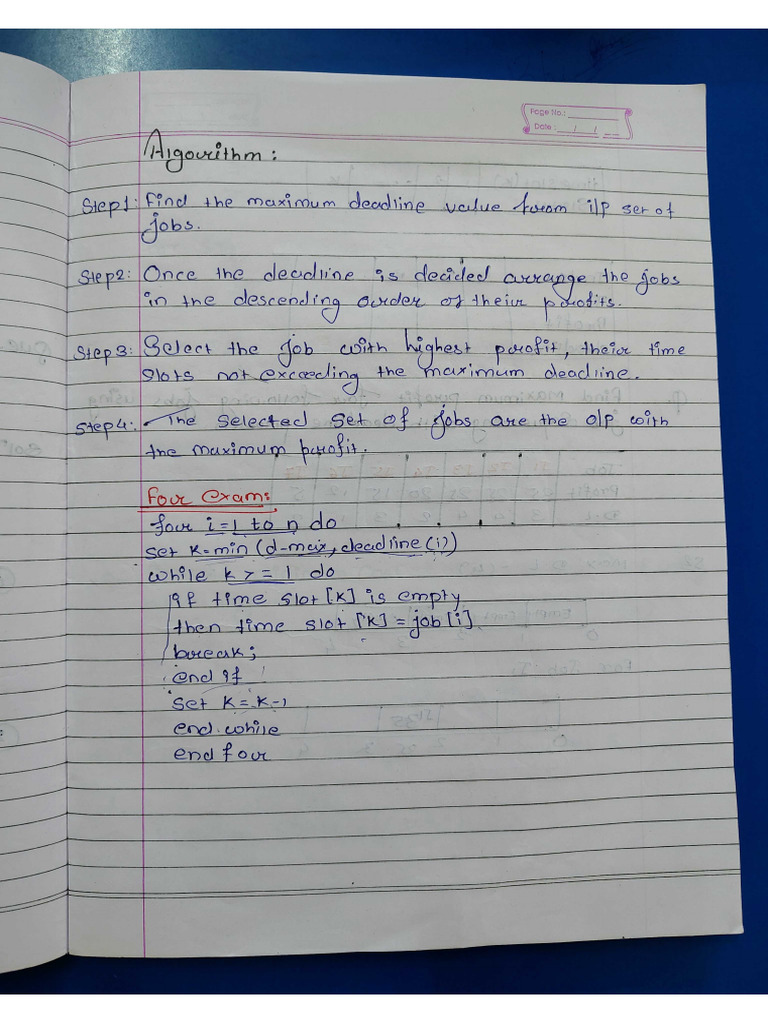 Page No.:
Date: / /
Algorithm:
Step1: Find the maximum deadline value from i/p set of
jobs.
Step2: Once the deadline is decided arrange the jobs
in the descending order of their profits.
Step3: Select the job with highest profit, their time
slots not exceeding the maximum deadline.
Step4: The selected set of jobs are the o/p with
the maximum profit.
For exam:
for i=1 to n do
set k=min (d-max, deadline(i))
while k >= 1 do
if time slot [k] is empty
then time slot [k] = job[i]
break;
end if
set k = k-1
end while
end for